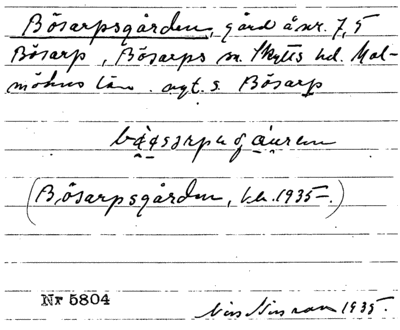 Bösarpsgården, gård å nr. 7,5
Bösarp, Bösarps sn. Skytts hd. Mal-
möhus län. nyt. s. Bösarp
(Bösarpsgården, kk. 1935–.)
Nr 5804
Nils Nilsson 1935.